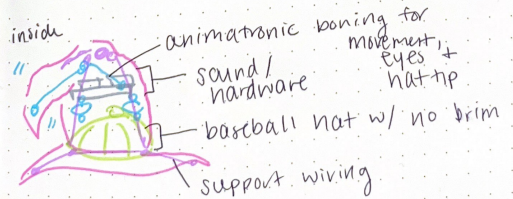 inside
animatronic boning for
movement,
eyes +
hat tip
sound /
hardware
baseball hat w/ no brim
support wiring